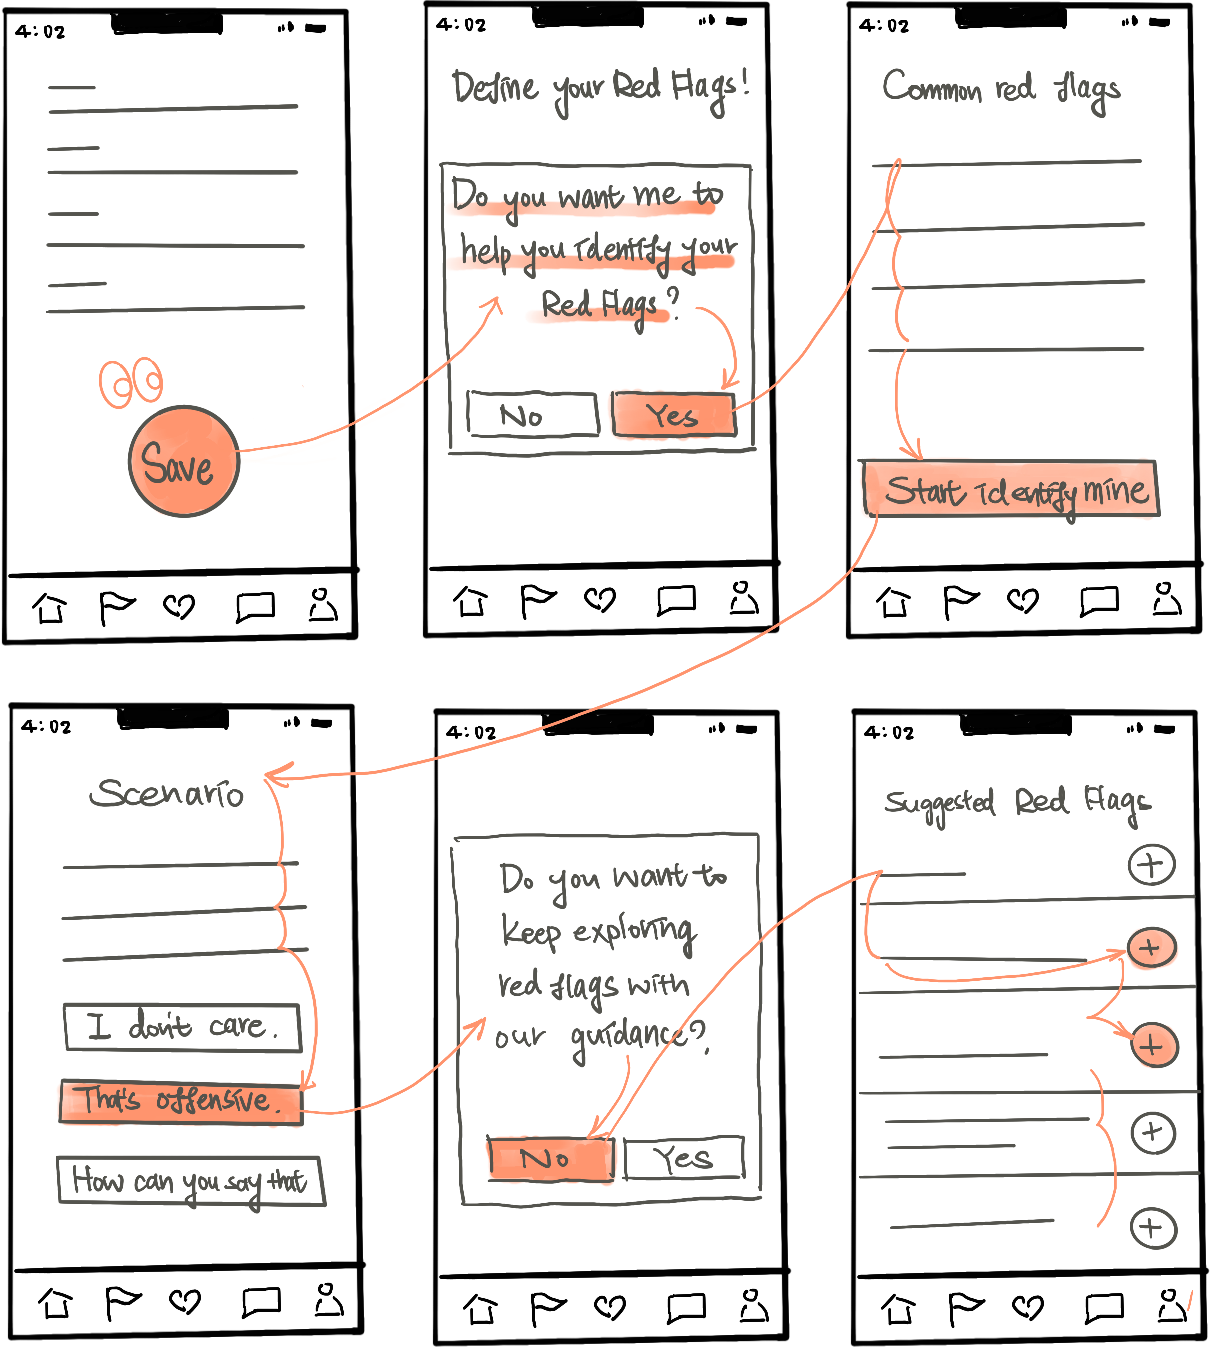 4:02
Save
4:02
Define your Red Flags!
Do you want me to
help you identify your
Red Flags?
No
Yes
4:02
Common red flags
Start identify mine
4:02
Scenario
I don't care.
That's offensive.
How can you say that
4:02
Do you want to
keep exploring
red flags with
our guidance?
No
Yes
4:02
Suggested Red Flags